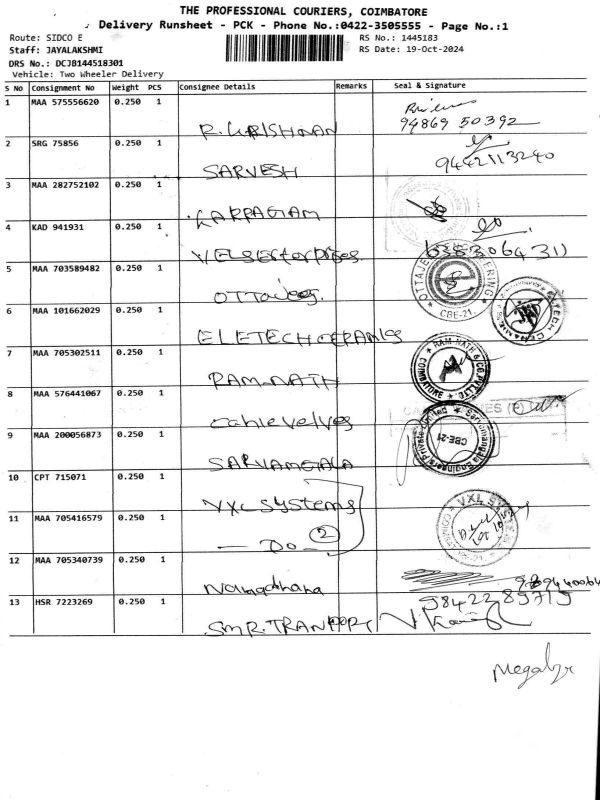 THE PROFESSIONAL COURIERS, COIMBATORE
Delivery Runsheet - PCK - Phone No.:0422-3505555 - Page No.:1
Route: SIDCO E
RS No.: 1445183
Staff: JAYALAKSHMI
RS Date: 19-Oct-2024
DRS No.: DCJB144518301
Vehicle: Two Wheeler Delivery
S No Consignment No Weight PCS Consignee Details Remarks Seal & Signature
1 MAA 575556620 0.250 1
R. KRISHNAN 94869 50392
2 SRG 75856 0.250 1
SARVESH 9442113240
3 MAA 282752102 0.250 1
KARPAGAM
4 KAD 941931 0.250 1
VELSEnterprises
5 MAA 703589482 0.250 1
CBE-21.
6 MAA 101662029 0.250 1
ELETECH CERAMICS
7 MAA 705302511 0.250 1
RAM-NATH
RAM-NATH & CO. PVT. LTD. COIMBATORE
8 MAA 576441067 0.250 1
Cable velves
9 MAA 200056873 0.250 1
SARVAMGALA
CBE-21
10 CPT 715071 0.250 1
VXL SYSTEMS
VXL
11 MAA 705416579 0.250 1
- DO - 2
12 MAA 705340739 0.250 1
13 HSR 7223269 0.250 1
98422 89719
SMR. TRANPORT